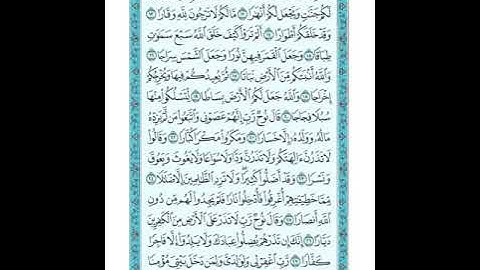 لَكُمْ جَنَّٰتٍ وَيَجْعَل لَّكُمْ أَنْهَٰرًا ۝١٢ مَّا لَكُمْ لَا تَرْجُونَ لِلَّهِ وَقَارًا ۝١٣
وَقَدْ خَلَقَكُمْ أَطْوَارًا ۝١٤ أَلَمْ تَرَوْا۟ كَيْفَ خَلَقَ ٱللَّهُ سَبْعَ سَمَٰوَٰتٍ
طِبَاقًا ۝١٥ وَجَعَلَ ٱلْقَمَرَ فِيهِنَّ نُورًا وَجَعَلَ ٱلشَّمْسَ سِرَاجًا ۝١٦
وَٱللَّهُ أَنۢبَتَكُم مِّنَ ٱلْأَرْضِ نَبَاتًا ۝١٧ ثُمَّ يُعِيدُكُمْ فِيهَا وَيُخْرِجُكُمْ
إِخْرَاجًا ۝١٨ وَٱللَّهُ جَعَلَ لَكُمُ ٱلْأَرْضَ بِسَاطًا ۝١٩ لِّتَسْلُكُوا۟ مِنْهَا
سُبُلًا فِجَاجًا ۝٢٠ قَالَ نُوحٌ رَّبِّ إِنَّهُمْ عَصَوْنِى وَٱتَّبَعُوا۟ مَن لَّمْ يَزِدْهُ
مَالُهُۥ وَوَلَدُهُۥٓ إِلَّا خَسَارًا ۝٢١ وَمَكَرُوا۟ مَكْرًا كُبَّارًا ۝٢٢ وَقَالُوا۟
لَا تَذَرُنَّ ءَالِهَتَكُمْ وَلَا تَذَرُنَّ وَدًّا وَلَا سُوَاعًا وَلَا يَغُوثَ وَيَعُوقَ
وَنَسْرًا ۝٢٣ وَقَدْ أَضَلُّوا۟ كَثِيرًا وَلَا تَزِدِ ٱلظَّٰلِمِينَ إِلَّا ضَلَٰلًا ۝٢٤
مِّمَّا خَطِيٓـَٰٔتِهِمْ أُغْرِقُوا۟ فَأُدْخِلُوا۟ نَارًا فَلَمْ يَجِدُوا۟ لَهُم مِّن دُونِ
ٱللَّهِ أَنصَارًا ۝٢٥ وَقَالَ نُوحٌ رَّبِّ لَا تَذَرْ عَلَى ٱلْأَرْضِ مِنَ ٱلْكَٰفِرِينَ
دَيَّارًا ۝٢٦ إِنَّكَ إِن تَذَرْهُمْ يُضِلُّوا۟ عِبَادَكَ وَلَا يَلِدُوٓا۟ إِلَّا فَاجِرًا
كَفَّارًا ۝٢٧ رَّبِّ ٱغْفِرْ لِى وَلِوَٰلِدَىَّ وَلِمَن دَخَلَ بَيْتِىَ مُؤْمِنًا